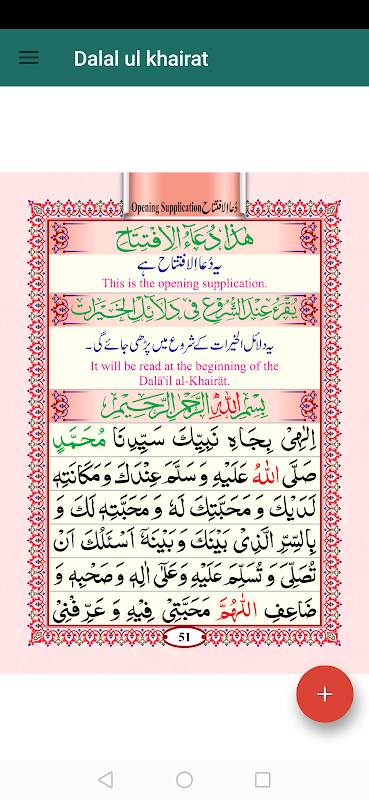 Dalal ul khairat
Opening Supplication دُعاءِ الافتتاح
هٰذَا دُعَآءُ الْاِفْتِتَاحِ
یہ دُعاءِ الافتتاح ہے
This is the opening supplication.
یُقْرَءُ عِنْدَ الشُّرُوْعِ فِیْ دَلَآئِلِ الْخَیْرَاتِ
یہ دلائل الخیرات کے شروع میں پڑھی جائے گی۔
It will be read at the beginning of the
Dalā'il al-Khairāt.
بِسْمِ اللّٰهِ الرَّحْمٰنِ الرَّحِیْمِ
اِلٰهِیْ بِجَاهِ نَبِیِّكَ سَیِّدِنَا مُحَمَّدٍ
صَلَّی اللّٰهُ عَلَیْهِ وَسَلَّمَ عِنْدَكَ وَ مَكَانَتِهٖ
لَدَیْكَ وَ مَحَبَّتِكَ لَهٗ وَ مَحَبَّتِهٖ لَكَ وَ
بِالسِّرِّ الَّذِیْ بَیْنَكَ وَ بَیْنَهٗٓ اَسْئَلُكَ اَنْ
تُصَلِّیَ وَ تُسَلِّمَ عَلَیْهِ وَ عَلٰٓی اٰلِهٖ وَ صَحْبِهٖ وَ
ضَاعِفِ اللّٰهُمَّ مَحَبَّتِیْ فِیْهِ وَ عَرِّفْنِیْ
51
+